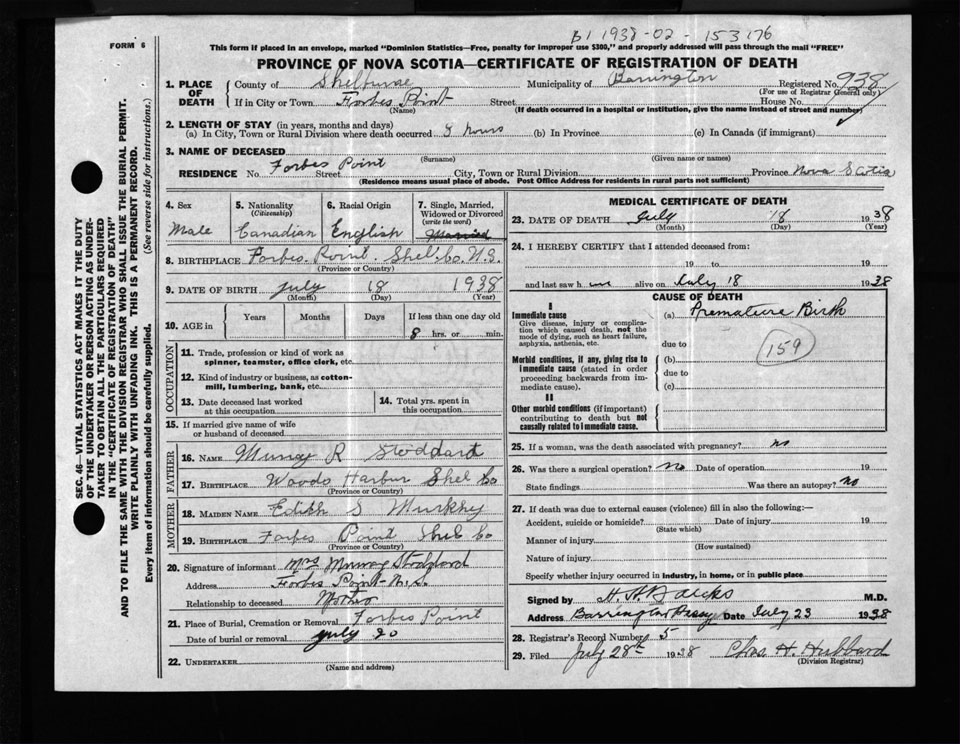 B1 1938-02-153176
FORM 6
This form if placed in an envelope, marked "Dominion Statistics—Free, penalty for improper use $300," and properly addressed will pass through the mail "FREE"
PROVINCE OF NOVA SCOTIA—CERTIFICATE OF REGISTRATION OF DEATH
1. PLACE OF DEATH County of Shelburne Municipality of Barrington Registered No. 938
(For use of Registrar General only)
If in City or Town Forbes Point Street House No.
(Name) (If death occurred in a hospital or institution, give the name instead of street and number)
2. LENGTH OF STAY (in years, months and days)
(a) In City, Town or Rural Division where death occurred 9 hours (b) In Province (c) In Canada (if immigrant)
3. NAME OF DECEASED
(Surname) (Given name or names)
RESIDENCE No. Forbes Point Street City, Town or Rural Division Province Nova Scotia
(Residence means usual place of abode. Post Office Address for residents in rural parts not sufficient)
4. Sex 5. Nationality (Citizenship) 6. Racial Origin 7. Single, Married, Widowed or Divorced (write the word)
Male Canadian English Married
8. BIRTHPLACE Forbes Point Shel. Co. N.S.
(Province or Country)
9. DATE OF BIRTH July 18 1938
(Month) (Day) (Year)
10. AGE in Years Months Days If less than one day old
8 hrs. or min.
OCCUPATION
11. Trade, profession or kind of work as spinner, teamster, office clerk, etc.
12. Kind of industry or business, as cotton-mill, lumbering, bank, etc.
13. Date deceased last worked at this occupation 14. Total yrs. spent in this occupation
15. If married give name of wife or husband of deceased
FATHER
16. NAME Murray R Stoddard
17. BIRTHPLACE Woods Harbur Shel Co
(Province or Country)
MOTHER
18. MAIDEN NAME Edith S Murphy
19. BIRTHPLACE Forbes Point Shel Co
(Province or Country)
20. Signature of informant Mrs Murray Stoddard
Address Forbes Point N.S.
Relationship to deceased Mother
21. Place of Burial, Cremation or Removal Forbes Point
Date of burial or removal July 20
22. UNDERTAKER
(Name and address)
MEDICAL CERTIFICATE OF DEATH
23. DATE OF DEATH July 18 1938
(Month) (Day) (Year)
24. I HEREBY CERTIFY that I attended deceased from:
19 to 19
and last saw h alive on July 18 1938
CAUSE OF DEATH
I
Immediate cause (a) Premature Birth
Give disease, injury or complication which caused death, not the mode of dying, such as heart failure, asphyxia, asthenia, etc.
due to
159
Morbid conditions, if any, giving rise to immediate cause (stated in order proceeding backwards from immediate cause).
(b)
due to
(c)
II
Other morbid conditions (if important) contributing to death but not causally related to immediate cause.
25. If a woman, was the death associated with pregnancy? no
26. Was there a surgical operation? No Date of operation 19
State findings Was there an autopsy? No
27. If death was due to external causes (violence) fill in also the following:—
Accident, suicide or homicide? Date of injury 19
(State which)
Manner of injury
(How sustained)
Nature of injury
Specify whether injury occurred in industry, in home, or in public place
Signed by M.D.
Address Barrington Passage Date July 23 1938
28. Registrar's Record Number 5
29. Filed July 28th 1938 Chas H. Hubbard
(Division Registrar)
SEC. 46—VITAL STATISTICS ACT MAKES IT THE DUTY
OF THE UNDERTAKER OR PERSON ACTING AS UNDER-
TAKER TO OBTAIN ALL THE PARTICULARS REQUIRED
IN THE "CERTIFICATE OF REGISTRATION OF DEATH"
AND TO FILE THE SAME WITH THE DIVISION REGISTRAR WHO SHALL ISSUE THE BURIAL PERMIT.
WRITE PLAINLY WITH UNFADING INK. THIS IS A PERMANENT RECORD.
Every item of information should be carefully supplied. (See reverse side for instructions.)